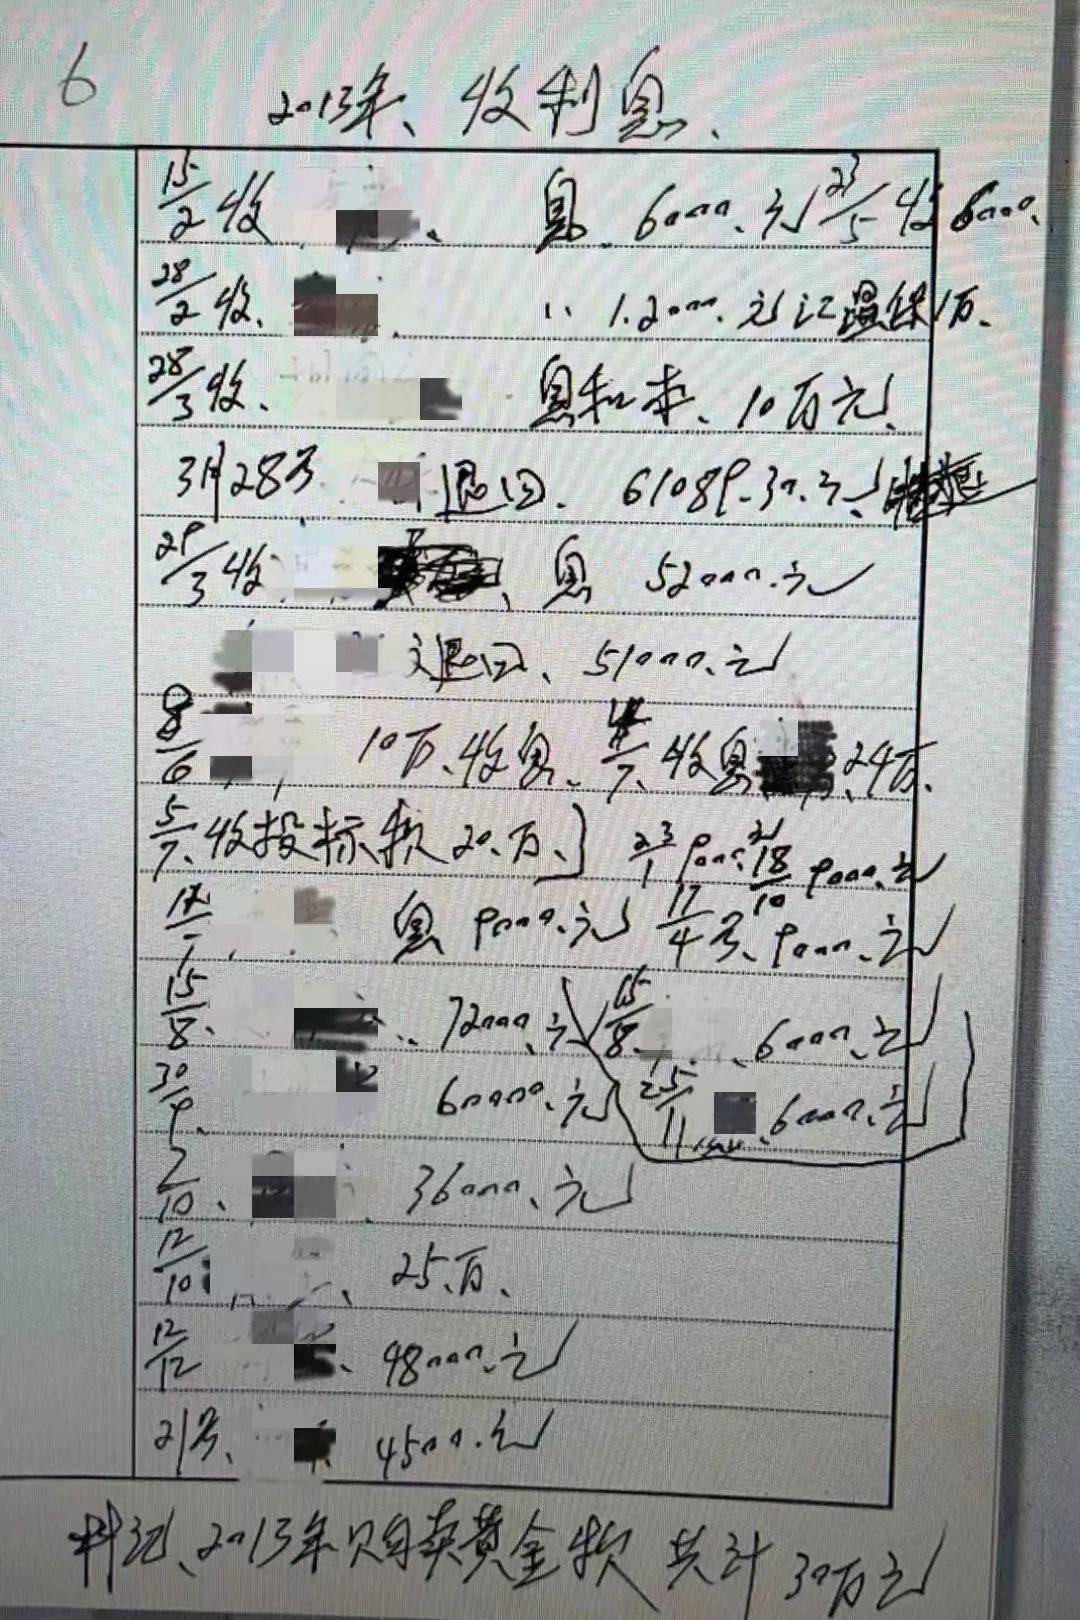 6
2013年、收利息、
15/2收 、 息、6000、元 23/5收6000、
28/2收、 、 〃 1.2000、元 汇温保1万、
28/3收、 息和本、10万元、
3月28号 退回、61089.30、元、
29/3收 、息 52000、元
又退回、51000、元
8/6 10万、收息、 /7、收息 、24万、
5/7、收投标款20万、 23/1 9000、元 18/10 9000、元
息 9000、元 17/4号、9000、元
15/8、 、72000、元 15/8、 、6000、元
30/9、 60000、元 25/11、 、6000、元
2/10、 、36000、元
12/10 、25万、
12/12 、48000、元
21号、 4500、元
2013年购买黄金款 共计 30万元